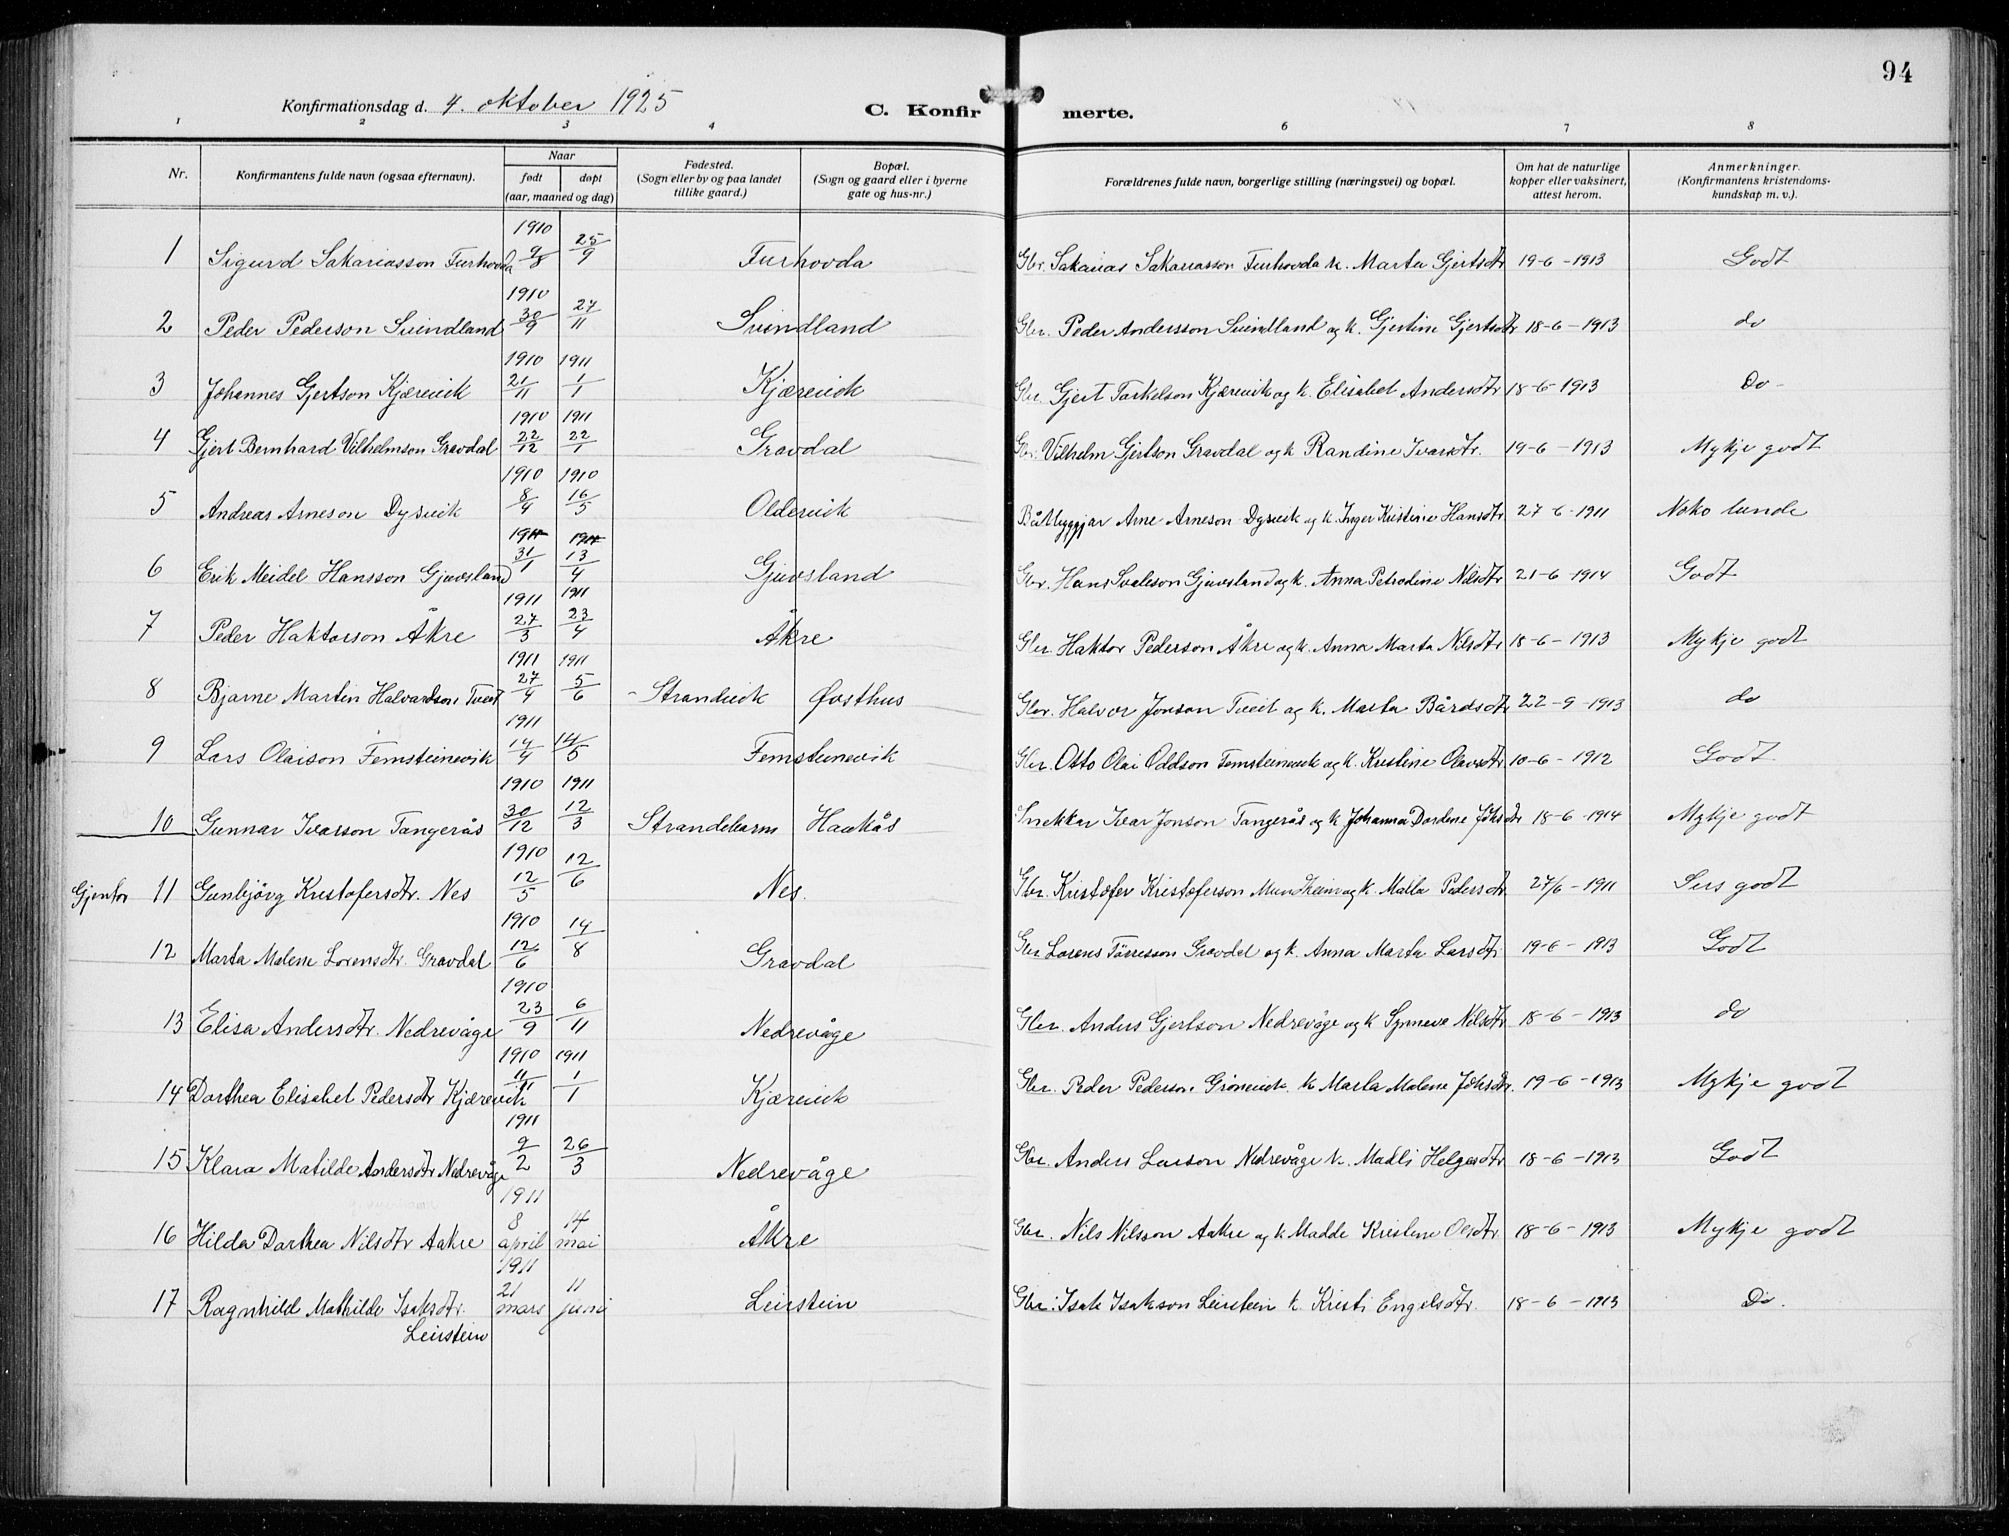 94
Konfirmationsdag d. 4. oktober 1925
C. Konfirmerte.
1 2 3 4 6 7 8
Nr. Konfirmantens fulde navn (ogsaa efternavn). Naar født døpt (aar, maaned og dag) Fødested. (Sogn eller by og paa landet tillike gaard.) Bopæl. (Sogn og gaard eller i byerne gate og hus-nr.) Forældrenes fulde navn, borgerlige stilling (næringsvei) og bopæl. Om hat de naturlige kopper eller vaksinert, attest herom. Anmerkninger. (Konfirmantens kristendoms-kundskap m. v.).
1 Sigurd Sakariasson Furhovda 1910 9/8 25/9 Furhovda Gbr. Sakarias Sakariasson Furhovda k. Marta Gjertsdtr 19-6-1913 Godt
2 Peder Pederson Svindland 1910 30/9 27/11 Svindland Gbr. Peder Andersson Svindland og k. Gjertine Gjertsdtr 18-6-1913 do
3 Johannes Gjertson Kjærevik 1910 21/11 1911 1/1 Kjærevik Gbr. Gjert Torkelson Kjærevik og k. Elisabet Andersdtr 18-6-1913 Do-
4 Gjert Bernhard Vilhelmson Gravdal 1910 22/12 1911 22/1 Gravdal Gbr. Vilhelm Gjertson Gravdal og k Randine Ivarsdtr. 19-6-1913 Mykje godt
5 Andreas Arneson Dysvik 1910 8/4 1910 16/5 Oldervik Båtbyggjar Arne Arneson Dysvik og k. Inger Kristine Hansdtr 27-6-1911 Noko lunde
6 Erik Meidel Hansson Gjuvsland 1911 31/1 1911 13/4 Gjuvsland Gbr. Hans Svaleson Gjuvsland og k. Anna Petrodine Nilsdtr 21-6-1914 Godt
7 Peder Haktorson Åkre 1911 27/3 1911 23/4 Åkre Gbr. Haktor Pederson Åkre og k. Anna Marta Nilsdtr 18-6-1913 Mykje godt
8 Bjarne Martin Halvardson Tveit 1911 27/4 1911 5/6 - Strandvik Øvsthus Gbr. Halvor Jonson Tveit og k. Marta Bårdsdtr 22-9-1913 do
9 Lars Olaison Femsteinevik 1911 14/4 14/5 Femsteinevik Gbr. Otto Olai Oddson Femsteinevik og k. Kristine Olavsdtr 10-6-1912 Godt
10 Gunnar Ivarson Tangerås 1910 30/12 1911 12/3 Strandebarm Haukås Snekkar Ivar Jonson Tangerås og k Johanna Dordene Johsdtr 18-6-1914 Mykje godt
Gjentor 11 Gunbjörg Kristofersdtr. Nes 1910 12/5 12/6 Nes. Gbr. Kristofer Kristoferson Mundheim og k. Malla Pedersdtr 27/6-1911 Sers godt
12 Marta Malene Lorensdtr. Gravdal 1910 12/6 14/8 Gravdal Gbr Lorens Tørresson Gravdal og k. Anna Marta Larsdtr. 19-6-1913 Godt
13 Elisa Andersdtr. Nedrevåge 1910 23/9 6/11 Nedrevåge Gbr. Anders Gjertson Nedrevåge og k Synneve Nilsdtr 18-6-1913 do
14 Dorthea Elisabet Pedersdtr Kjærevik 1910 11/11 1911 1/1 Kjærevik Gbr. Peder Pederson Grönevik k Marta Malene Johsdtr. 19-6-1913 Mykje godt
15 Klara Matilde Andersdtr Nedrevåge 1911 9/2 26/3 Nedrevåge Gbr. Anders Larson Nedrevåge k. Madli Helgesdtr 18-6-1913 Godt
16 Hilda Dorthea Nilsdtr Aakre 1911 8 april 14 mai Åkre Gbr. Nils Nilsson Aakre og k Madde Kristene Olsdtr. 18-6-1913 Mykje godt
17 Ragnhild Mathilde Isaksdtr. Leirstein 1911 21 mars 11 juni Leirstein Gbr. Isak Isakson Leirstein k. Kristi Engelsdtr. 18-6-1913 Do.